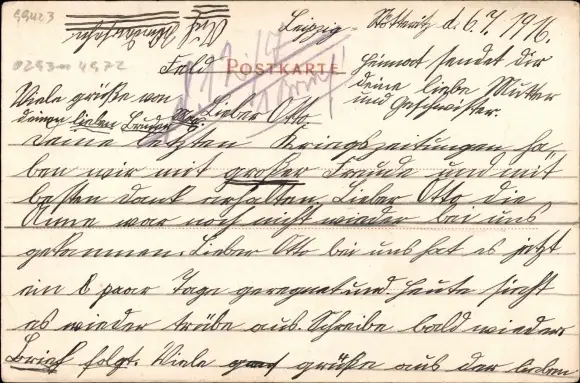 99423
0293m 4972
Leipzig - Stötteritz d. 6.7.1916.
Feld POSTKARTE
Viele grüße von
deinen lieben Bruder
Lieber Otto
Deine letzten Kriegszeitungen ha-
ben wir mit großer Freude und mit
besten dank erhalten. Lieber Otto die
Anne war noch nicht wieder bei uns
gekommen. Lieber Otto bei uns hat es jetzt
ein paar Tage geregnet und heute sieht
es wieder trübe aus. Schreibe bald wieder
Brief folgt. Viele grüße aus der lieben
Heimat sendet dir
deine liebe Mutter
und Geschwister.